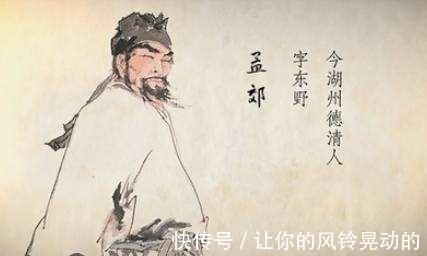 今湖州德清人
字东野
孟郊
快传号/让你的风铃晃动的